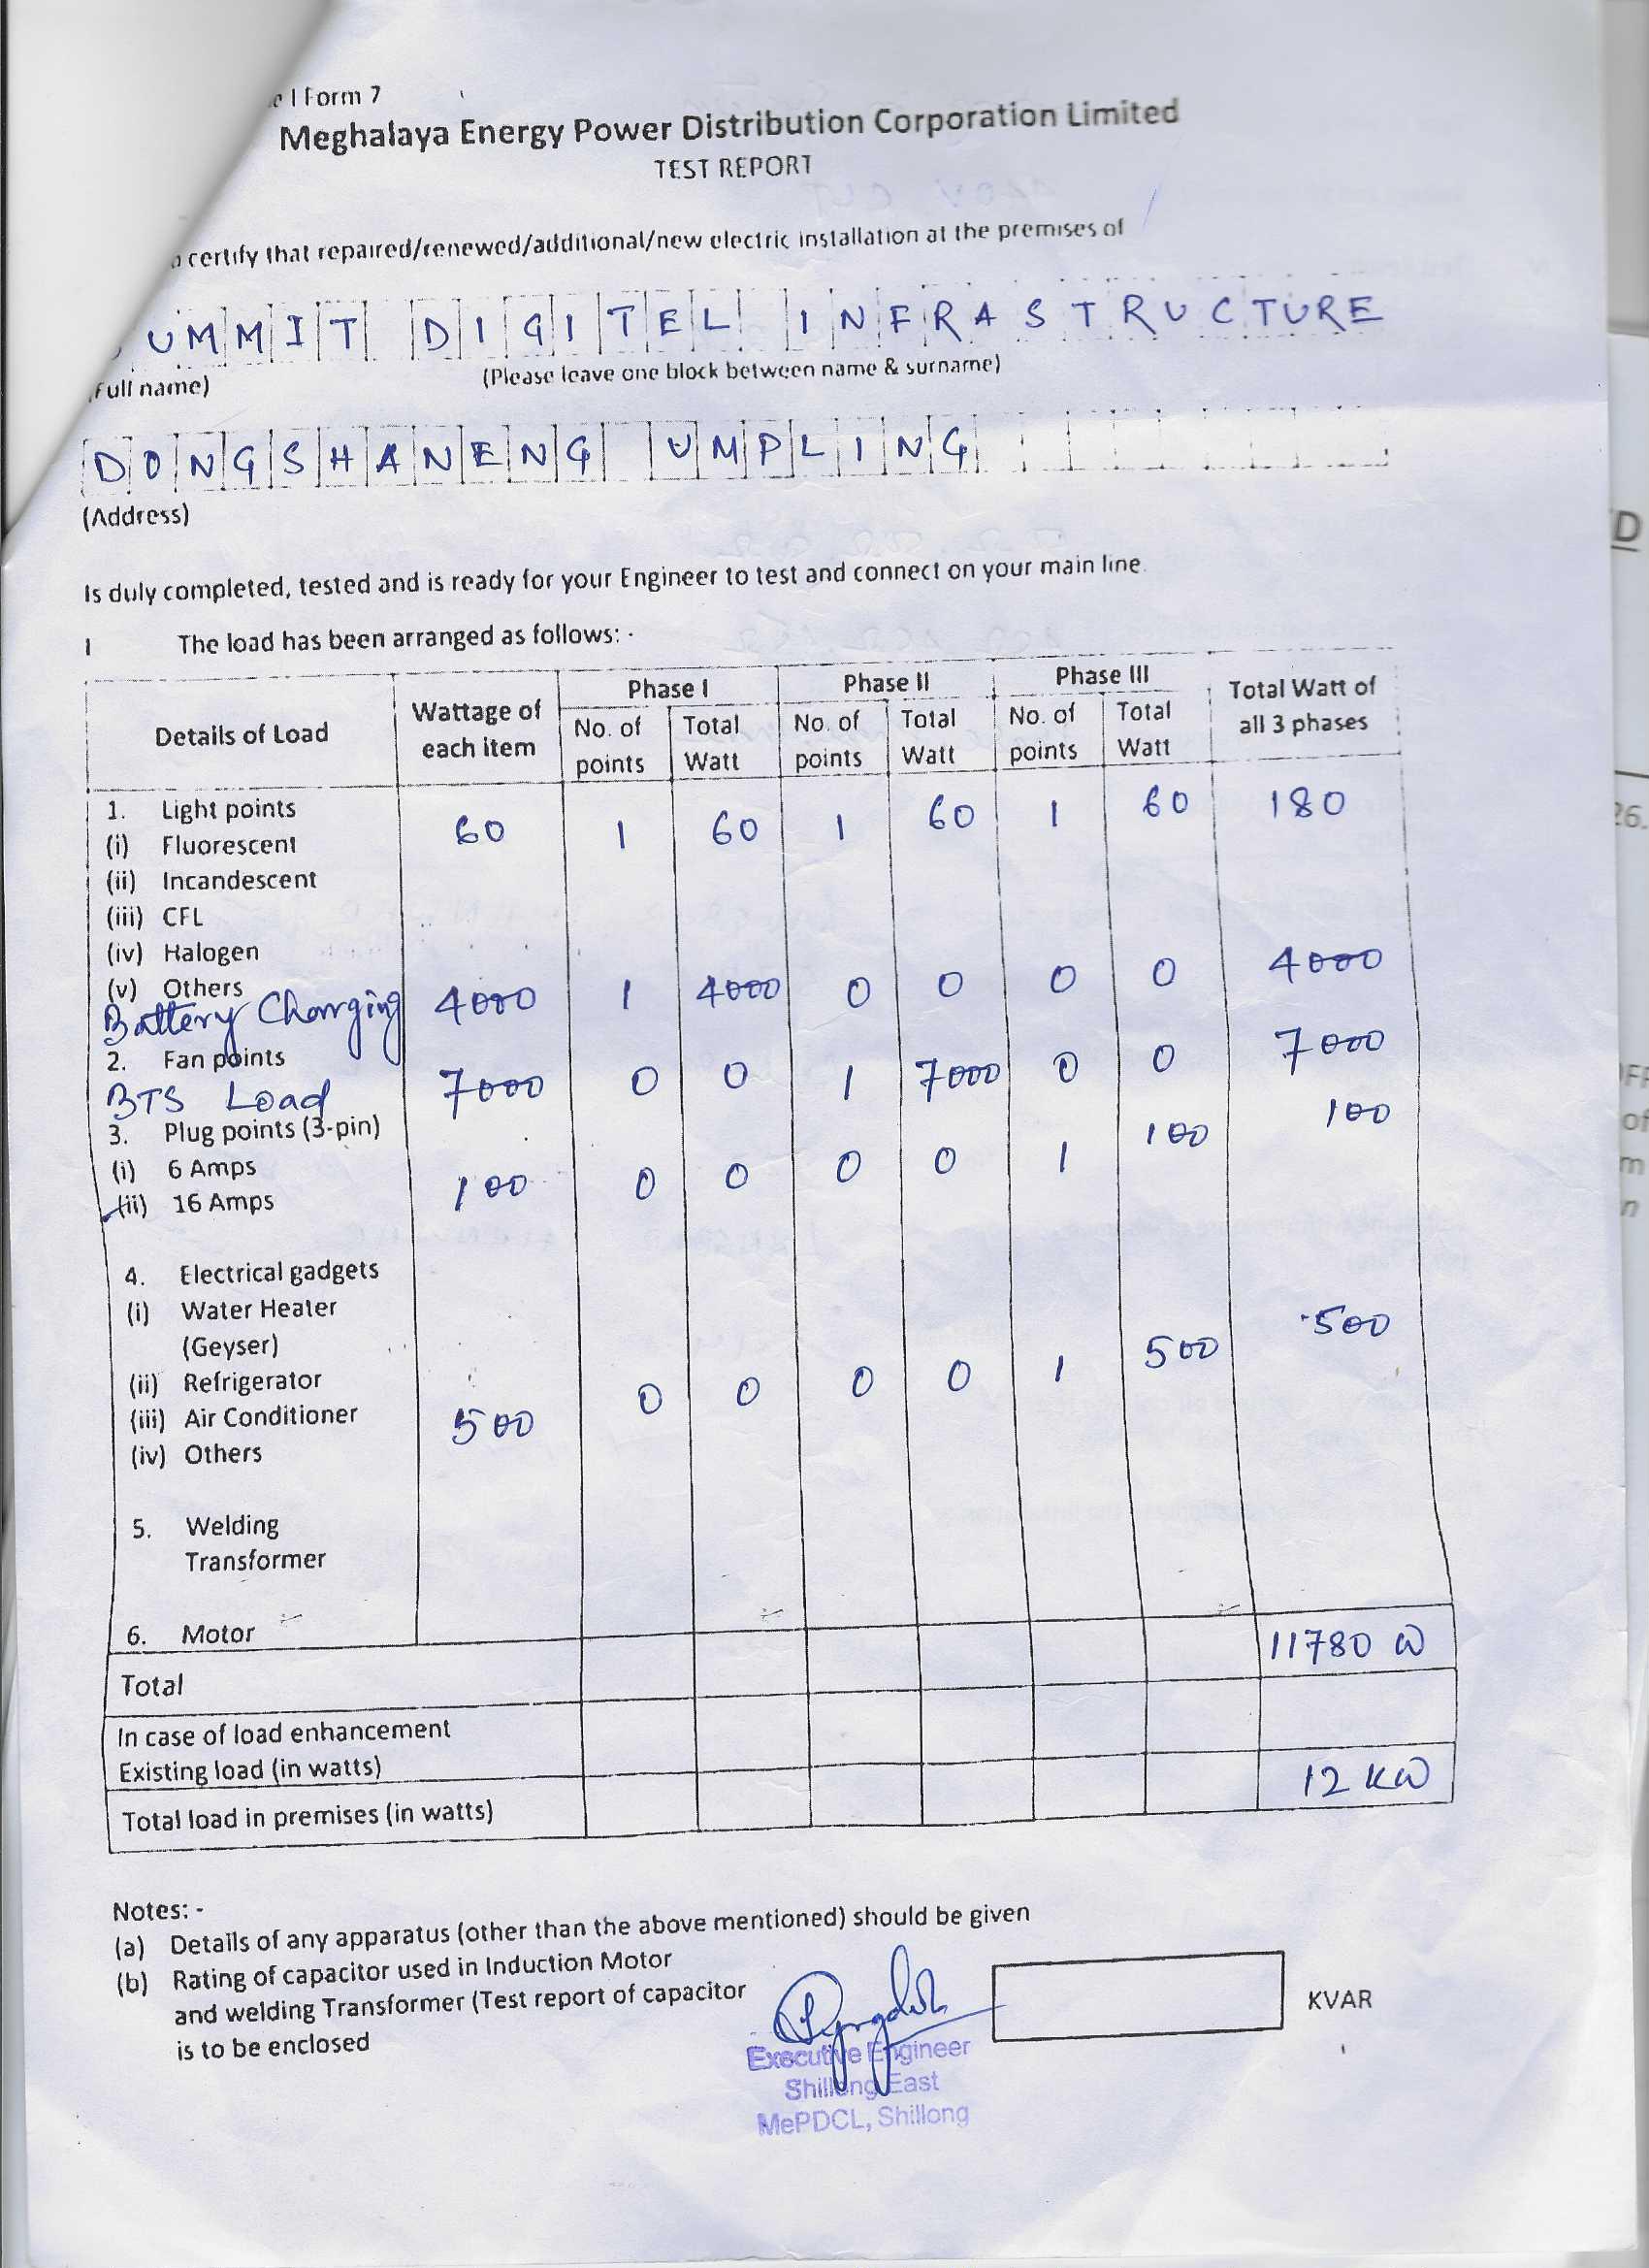 I Form 7
Meghalaya Energy Power Distribution Corporation Limited
TEST REPORT
certify that repaired/renewed/additional/new electric installation at the premises of
UMMIT DIGITEL INFRASTRUCTURE
Full name) (Please leave one block between name & surname)
DONGSHANENG UMPLING
(Address)
Is duly completed, tested and is ready for your Engineer to test and connect on your main line.
I The load has been arranged as follows: -
Details of Load Wattage of each item Phase I Phase II Phase III Total Watt of all 3 phases
No. of points Total Watt No. of points Total Watt No. of points Total Watt
1. Light points
(i) Fluorescent 60 1 60 1 60 1 60 180
(ii) Incandescent
(iii) CFL
(iv) Halogen
(v) Others
Battery Charging 4000 1 4000 0 0 0 0 4000
2. Fan points
BTS Load 7000 0 0 1 7000 0 0 7000
3. Plug points (3-pin)
(i) 6 Amps
(ii) 16 Amps 100 0 0 0 0 1 100 100
4. Electrical gadgets
(i) Water Heater
(Geyser)
(ii) Refrigerator
(iii) Air Conditioner 500 0 0 0 0 1 500 500
(iv) Others
5. Welding
Transformer
6. Motor
Total 11780 W
In case of load enhancement
Existing load (in watts)
Total load in premises (in watts) 12 KW
Notes: -
(a) Details of any apparatus (other than the above mentioned) should be given
(b) Rating of capacitor used in Induction Motor
and welding Transformer (Test report of capacitor
is to be enclosed
KVAR
Executive Engineer
Shillong East
MePDCL, Shillong